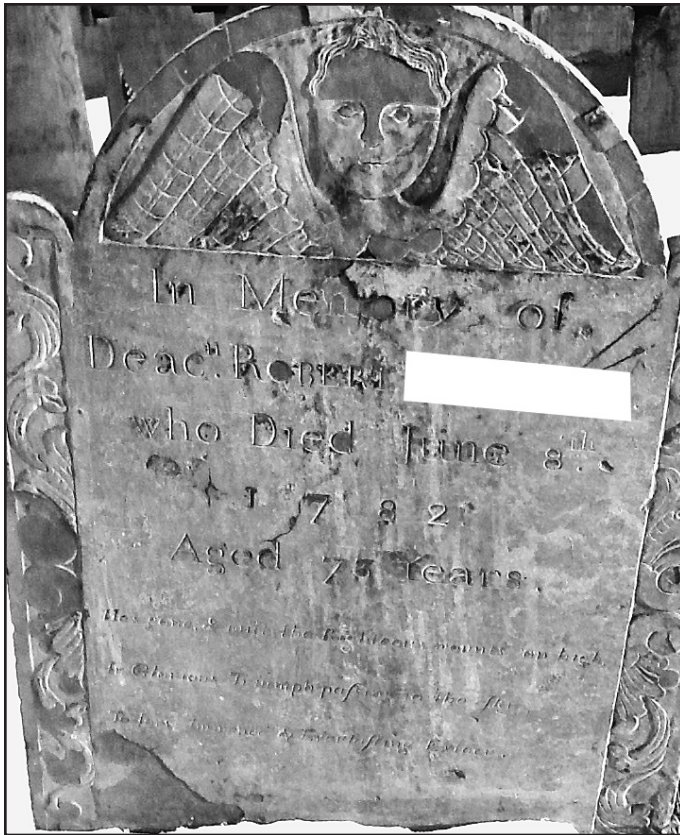 In Memory of.
Deac.ⁿ ROBERT
who Died June 8.ᵗʰ
1782.
Aged 75 Years.
He's gone, & with the Righteous mounts on high
In Glorious Triumph passing to the
To &